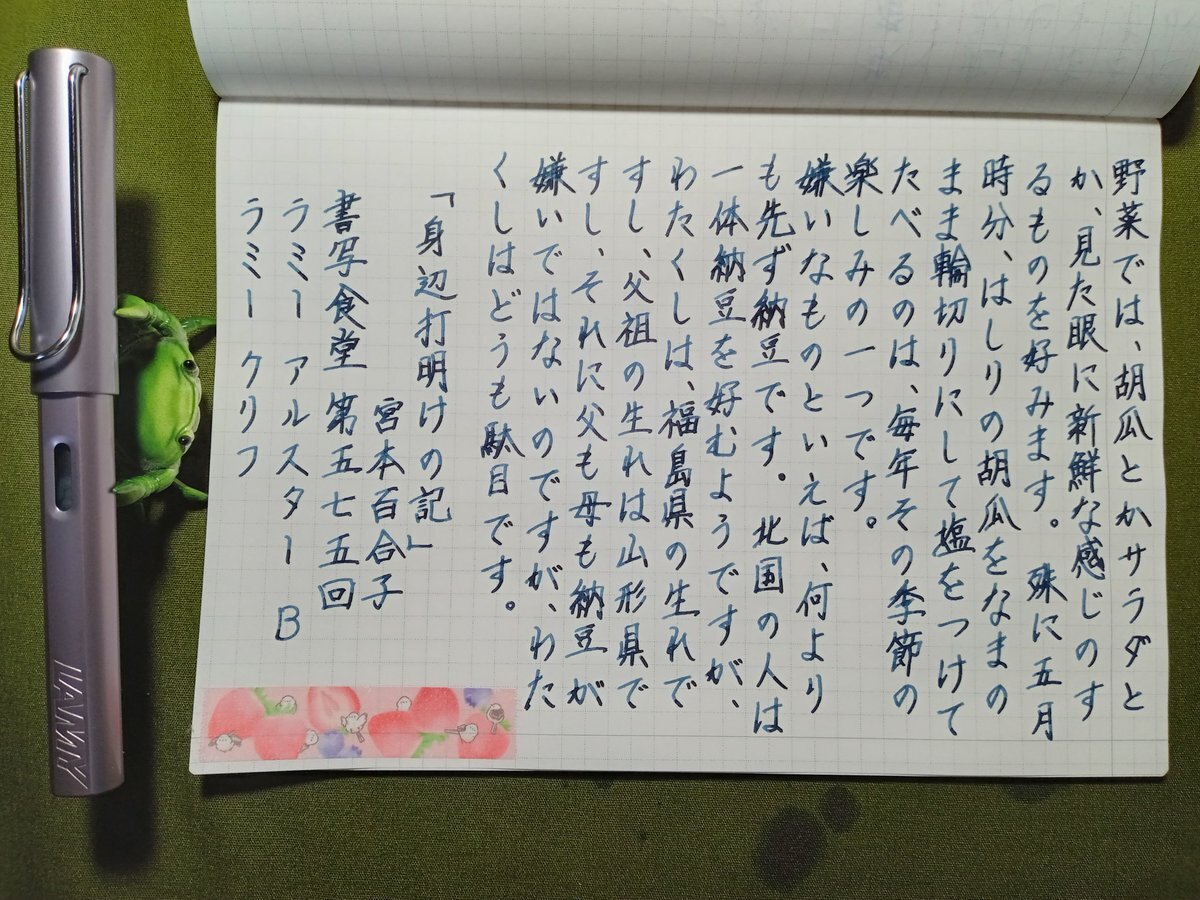 野菜では、胡瓜とかサラダと
か、見た眼に新鮮な感じのす
るものを好みます。殊に五月
時分、はしりの胡瓜をなまの
まま輪切りにして塩をつけて
たべるのは、毎年その季節の
楽しみの一つです。
嫌いなものといえば、何より
も先ず納豆です。北国の人は
一体納豆を好むようですが、
わたくしは、福島県の生れで
すし、父祖の生れは山形県で
すし、それに父も母も納豆が
嫌いではないのですが、わた
くしはどうも駄目です。
「身辺打明けの記」
宮本百合子
書写食堂 第五七五回
ラミー アルスター B
ラミー クリフ
LAMY